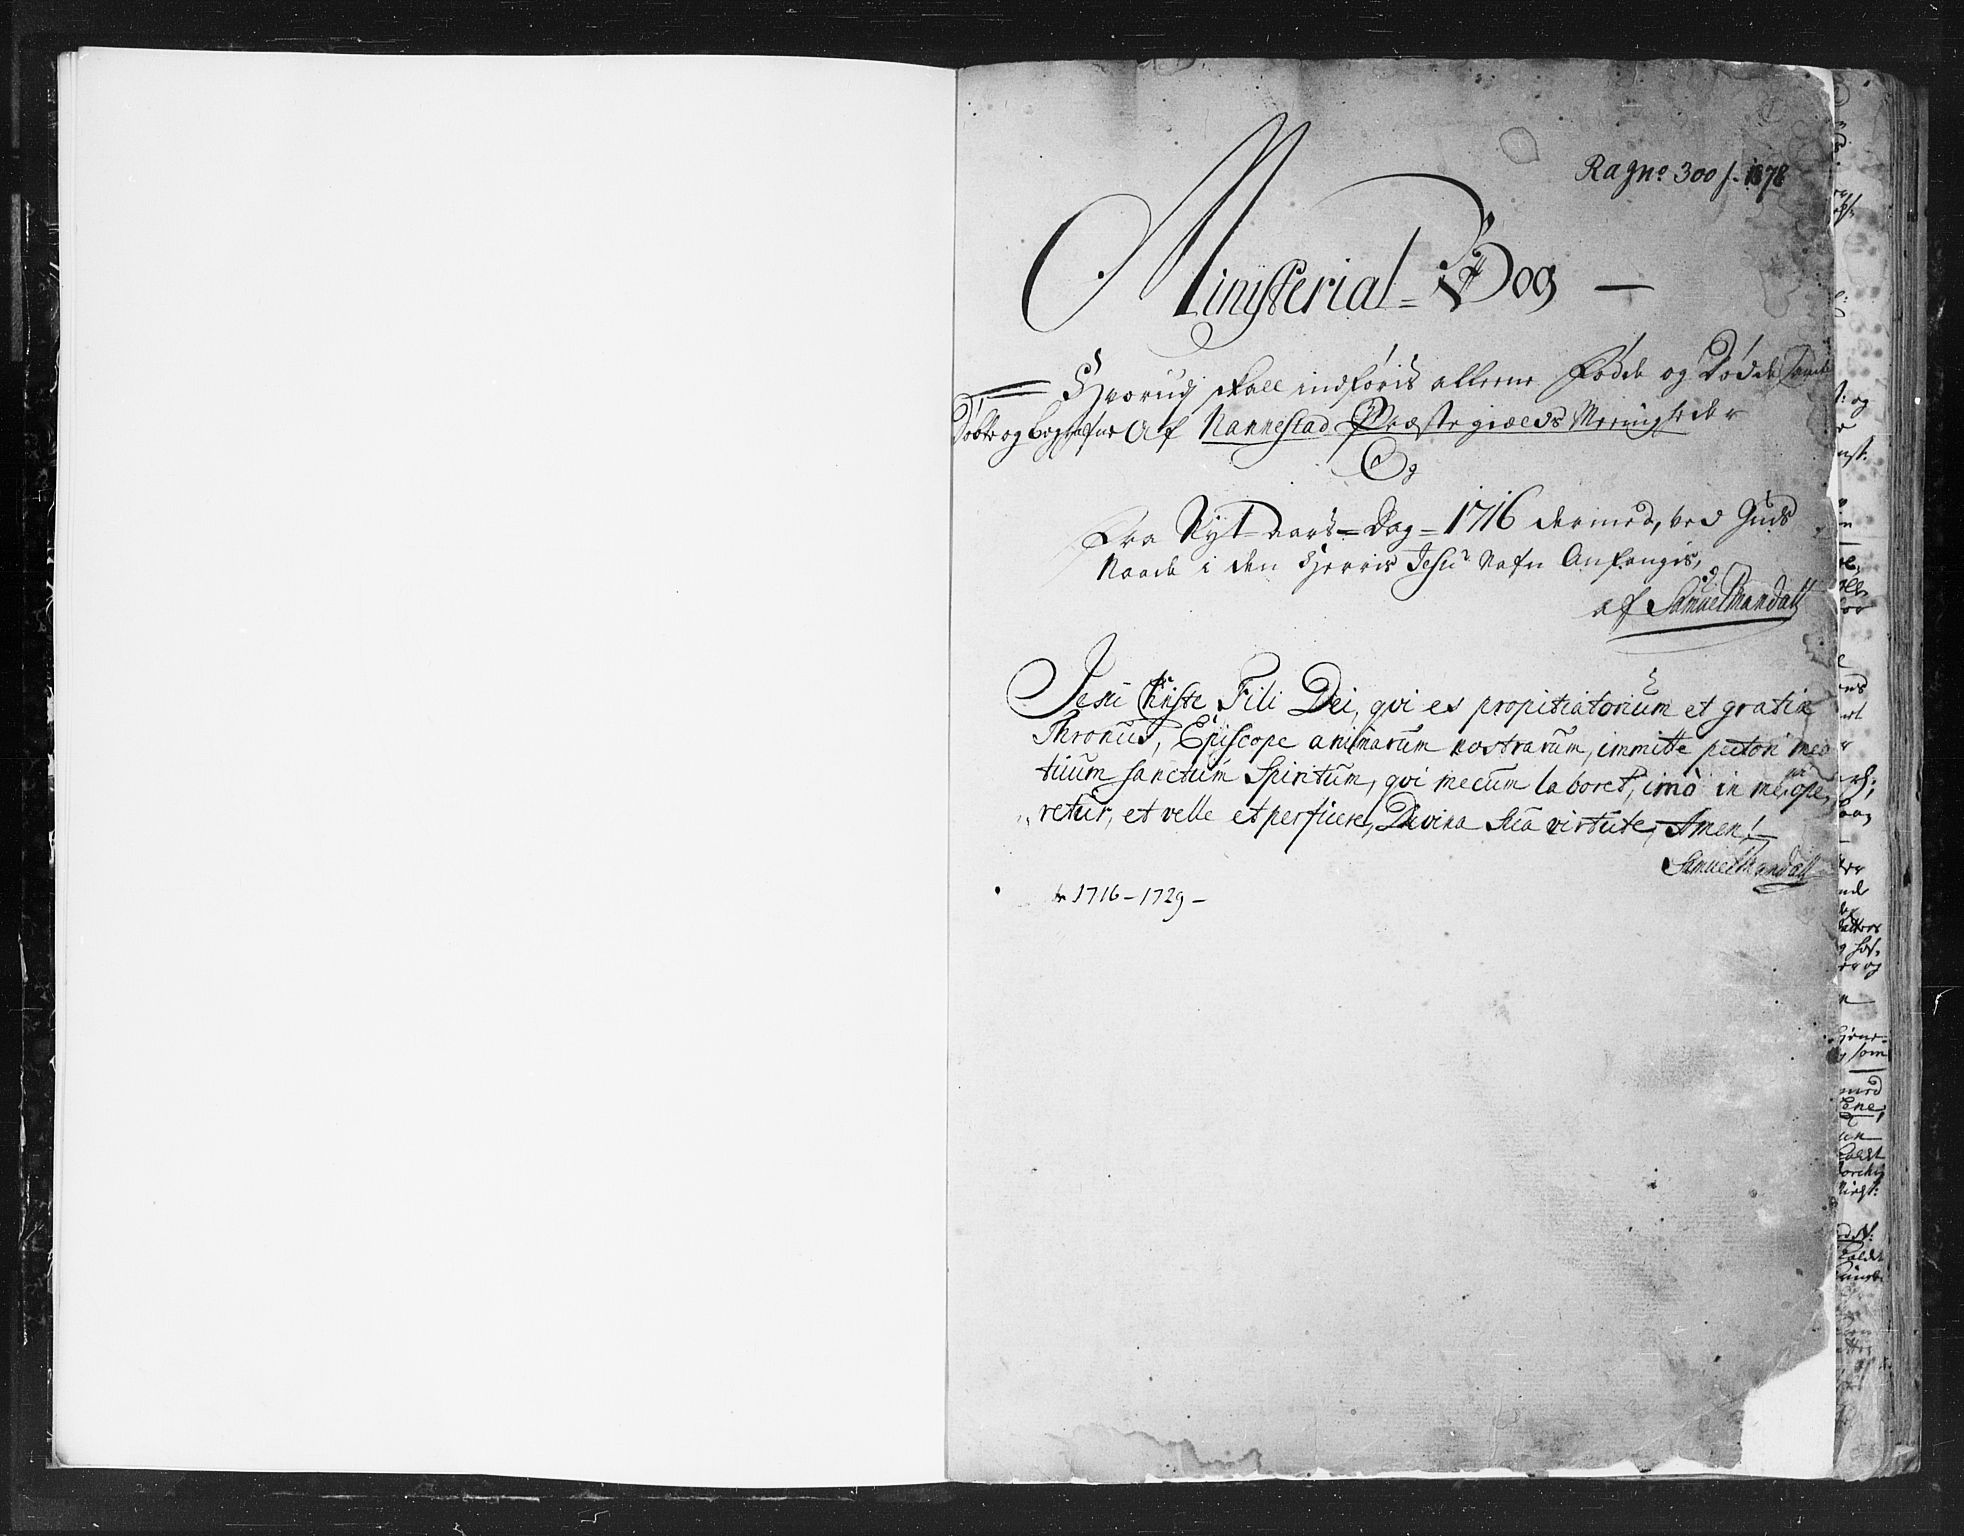 Ragno 300 f. 1878
Ministerial=Bog —
Hvorudj skall indføris allerne Fødde og Dødde samt
Døbte og begrafne Af Nannestad Præstegiælds Meenigheder
Og
Fra Nyt-aars=Dag=1716 dermed, ved Guds
Naade i den Herris Jesu Nafn Anfangis,
af Samuel Mandall
Jesu Christe Fili Dei, qvi es propitiatorium et gratiæ
Thronus, Episcope animarum nostrarum, immitte pectori meo
tuum sanctum Spiritum, qvi mecum laboret, imò in me ope
retur, et velle et perficere, Divina sua virtute, Amen!
Samuel Mandall
1716-1729-